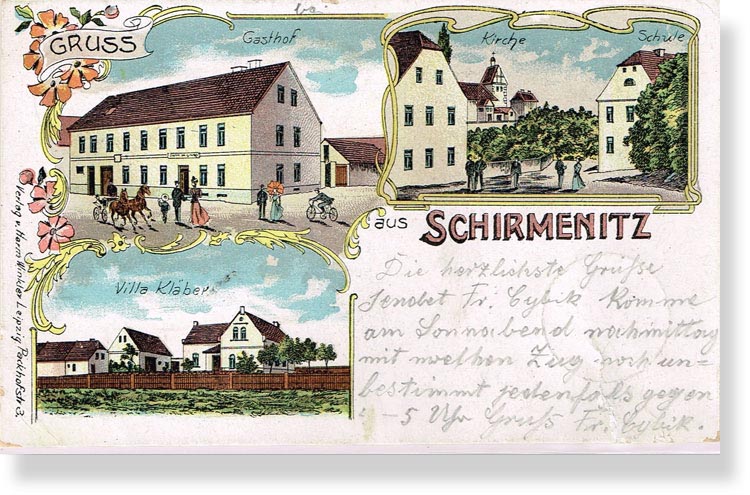 GRUSS
Gasthof
Kirche
Schule
aus SCHIRMENITZ
Villa Kläber
Die herzlichste Grüße
sendet Fr. Cybik Komme
am Sonnabend nachmittag
mit welhen Zug noch un-
bestimmt jedenfalls gegen
-5 Uhr Gruß Fr. Cybik.
Verlag v. Herm. Winkler Leipzig, Parkhofstr 3,